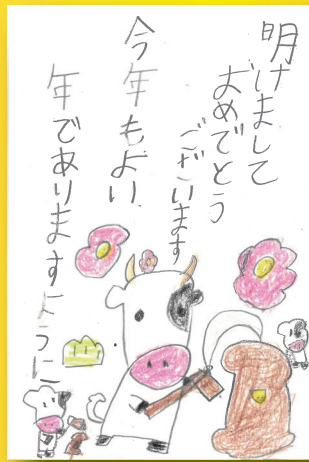 明けまして
おめでとう
ございます
今年もよい
年でありますように